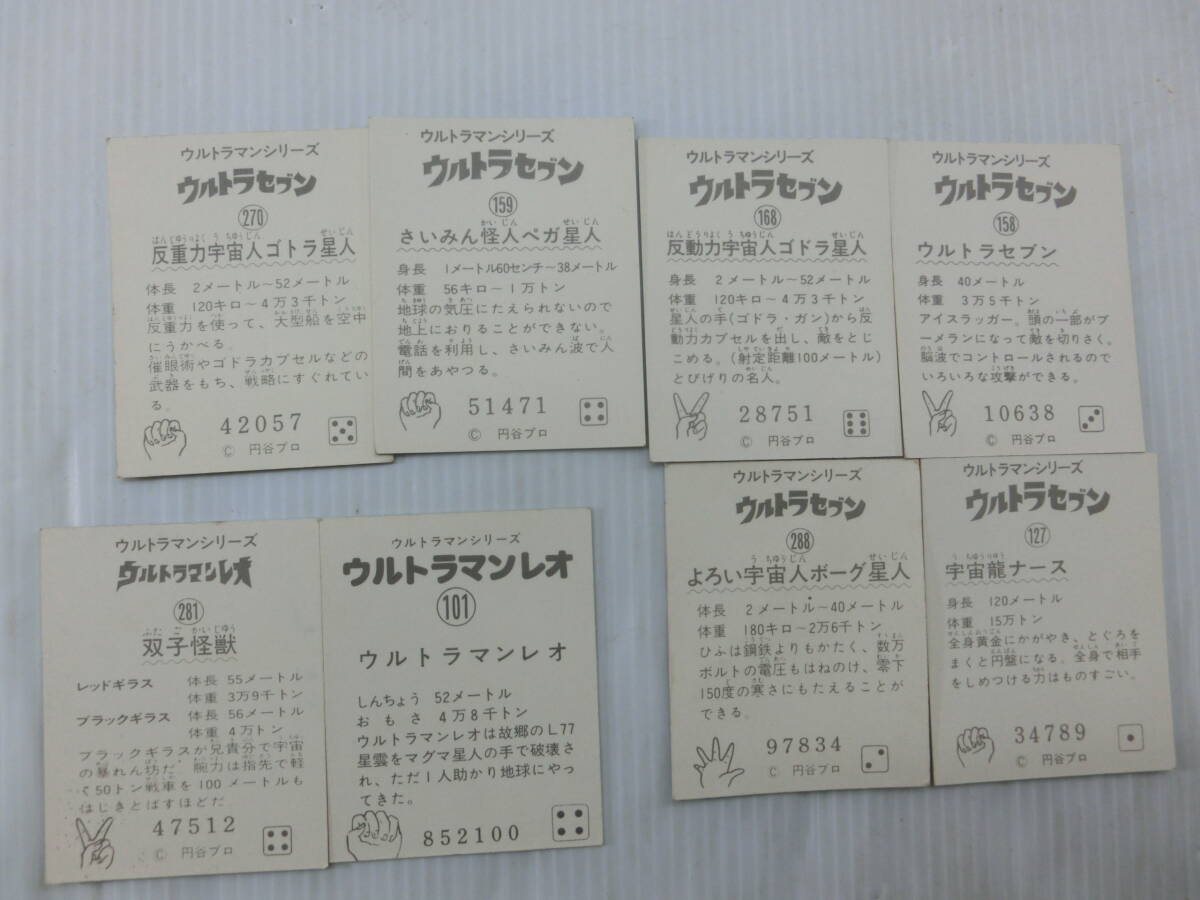 ウルトラマンシリーズ
ウルトラセブン
270
はんじゅうりょく う ちゅうじん せいじん
反重力宇宙人ゴトラ星人
体長 2メートル〜52メートル
体重 120キロ〜4万3千トン
反重力を使って、大型船を空中
にうかべる。
催眠術やゴドラカプセルなどの
武器をもち、戦略にすぐれてい
る。
42057
© 円谷プロ
ウルトラマンシリーズ
ウルトラセブン
159
かいじん せいじん
さいみん怪人ペガ星人
身長 1メートル60センチ〜38メートル
体重 56キロ〜1万トン
地球の気圧にたえられないので
地上におりることができない。
電話を利用し、さいみん波で人
間をあやつる。
51471
© 円谷プロ
ウルトラマンシリーズ
ウルトラセブン
168
はんどうりょく う ちゅうじん せいじん
反動力宇宙人ゴドラ星人
身長 2メートル〜52メートル
体重 120キロ〜4万3千トン
星人の手(ゴドラ・ガン)から反
動力カプセルを出し、敵をとじ
こめる。(射定距離100メートル)
とびげりの名人。
28751
© 円谷プロ
ウルトラマンシリーズ
ウルトラセブン
158
ウルトラセブン
身長 40メートル
体重 3万5千トン
アイスラッガー。頭の一部がブ
ーメランになって敵を切りさく。
脳波でコントロールされるので
いろいろな攻撃ができる。
10638
© 円谷プロ
ウルトラマンシリーズ
ウルトラマンレオ
281
ふたご かいじゅう
双子怪獣
レッドギラス 体長 55メートル
体重 3万9千トン
ブラックギラス 体長 56メートル
体重 4万トン
ブラックギラスが兄貴分で宇宙
の暴れん坊だ。腕力は指先で軽
く50トン戦車を100メートルも
はじきとばすほどだ
47512
© 円谷プロ
ウルトラマンシリーズ
ウルトラマンレオ
101
ウルトラマンレオ
しんちょう 52メートル
おもさ 4万8千トン
ウルトラマンレオは故郷のL77
星雲をマグマ星人の手で破壊さ
れ、ただ1人助かり地球にやっ
てきた。
852100
ウルトラマンシリーズ
ウルトラセブン
288
う ちゅうじん せいじん
よろい宇宙人ボーグ星人
体長 2メートル〜40メートル
体重 180キロ〜2万6千トン
ひふは鋼鉄よりもかたく、数万
ボルトの電圧もはねのけ、零下
150度の寒さにもたえることが
できる。
97834
© 円谷プロ
ウルトラマンシリーズ
ウルトラセブン
127
う ちゅうりゅう
宇宙龍ナース
身長 120メートル
体重 15万トン
全身黄金にかがやき、とぐろを
まくと円盤になる。全身で相手
をしめつける力はものすごい。
34789
© 円谷プロ